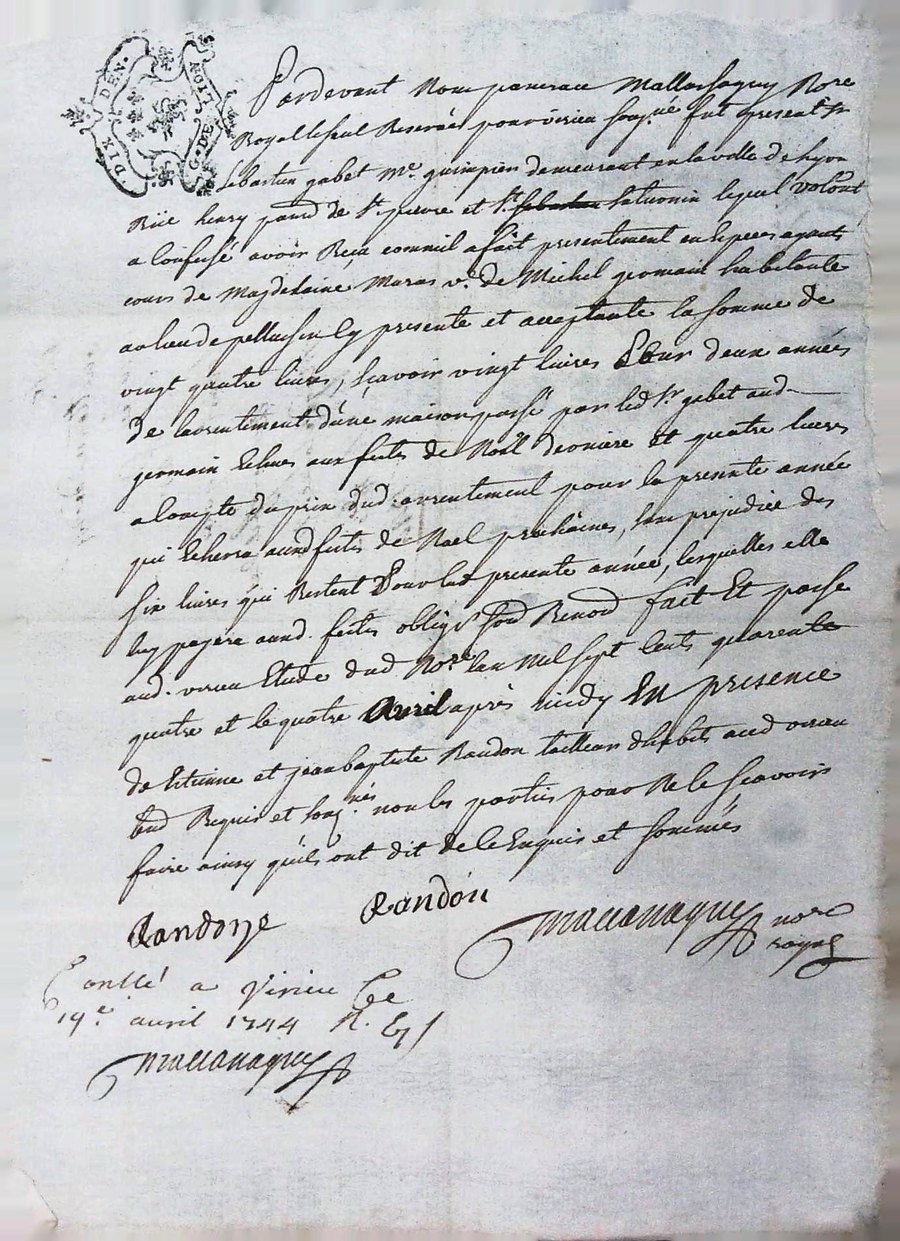 DIX DEN. G. DE LION
Pardevant Nous pancrace Mallassaguy Nore
Royal le seul Reservés pour virieu soug.né fut present Sr
sebastien gabet Me. guimpier demeurant en la ville de Lyon
Rüe henry parr.d de St. pierre et St. saturnin lequel volont
a confessé avoir Reçu comm'il a fait presentement en especes ayants
cours de Magdelaine Maras ve. de Michel germain habitante
au lieu de pellussin Cy presente et acceptante la somme de
vingt quatre livres, sçavoir vingt livres Pour deux années
de larrentement d'une maison passé par led. Sr. gabet aud.
germain Echues aux festes de Noël derniere Et quatre livres
a compte du prix dud. arrentement pour la presente année
qui Echerra auxd. fetes de Noel prochaines, sans prejudice des
six livres qui Restent Pour lad. presente année, lesquelles elle
luy payera auxd. fetes oblign. soud. Renond. fait Et passé
aud. virieu Etude dud Nore. Lan Mil sept Cents quarente
quatre et le quatre Avril après midy En presence
de Etienne et jean baptiste Randon tailleurs d'habits aud virieu
tmd Requis et soug.nés non les parties pour Ne le sçavoir
faire ainsy quils ont dit de ce Enquis et sommés
Randon Randon
nore
royal
Conllé a Virieu Ce
19e. avril 1744 R.